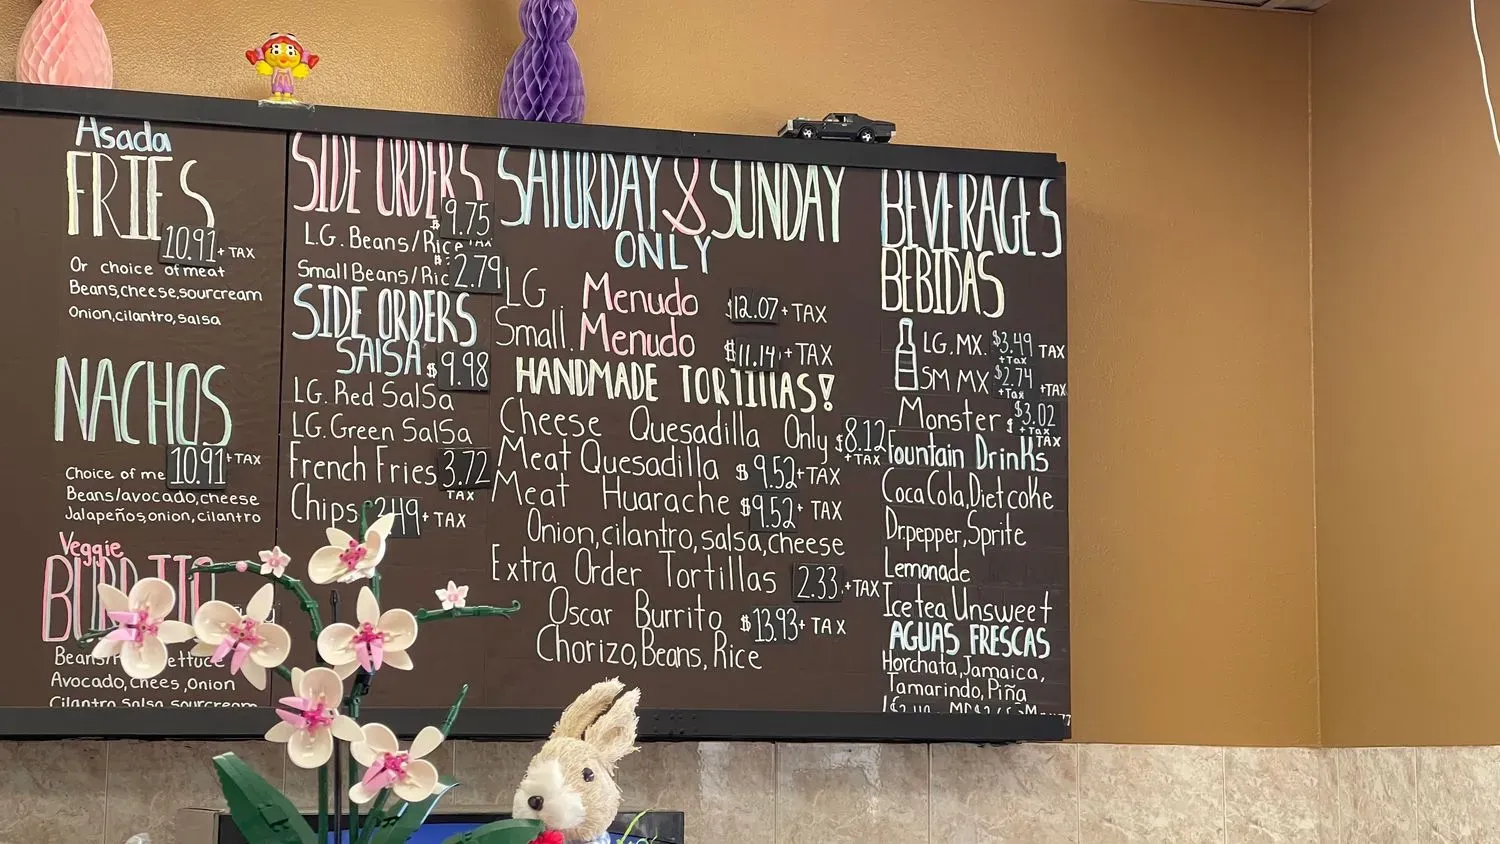 Asada
FRIES
10.91 + TAX
Or choice of meat
Beans,cheese,sourcream
Onion,cilantro,salsa
NACHOS
10.91 + TAX
Choice of me
Beans/avocado,cheese
Jalapeños,onion,cilantro
Veggie
BURRITO
Beans/ lettuce
Avocado,Chees,Onion
Cilantro,Salsa,sourcream
SIDE ORDERS
$9.75
L.G. Beans/Rice TAX
Small Beans/Ric $2.79
SIDE ORDERS
SALSA $9.98
LG. Red SalSa
LG. Green SalSa
French Fries 3.72
TAX
Chips 2.49 + TAX
SATURDAY & SUNDAY
ONLY
LG Menudo $12.07 + TAX
Small. Menudo $11.14 + TAX
HANDMADE TORTILLAS!
Cheese Quesadilla Only $8.12
+TAX
Meat Quesadilla $9.52+TAX
Meat Huarache $9.52 + TAX
Onion,cilantro,salsa,cheese
Extra Order Tortillas 2.33 +TAX
Oscar Burrito $13.93+ TAX
Chorizo,Beans,Rice
BEVERAGES
BEBIDAS
LG.MX. $3.49 TAX
+Tax
SM MX $2.74 +TAX
+Tax
Monster $3.02
$ +Tax TAX
Fountain Drinks
CocaCola,Dietcoke
Dr.pepper,Sprite
Lemonade
Icetea Unsweet
AGUAS FRESCAS
Horchata,Jamaica,
Tamarindo,Piña